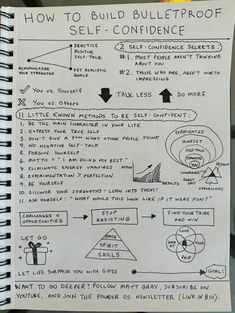 HOW TO BUILD BULLETPROOF
SELF-CONFIDENCE
PRACTICE
POSITIVE
SELF-TALK
ACKNOWLEDGE
YOUR STRENGTHS
SET REALISTIC
GOALS
2 SELF-CONFIDENCE SECRETS:
#1 MOST PEOPLE AREN'T THINKING
ABOUT YOU
#2 THOSE WHO ARE, AREN'T WORTH
IMPRESSING
YOU VS. YOURSELF
YOU VS. OTHERS
TALK LESS
DO MORE
11 LITTLE KNOWN METHODS TO BE SELF-CONFIDENT:
1. BE THE MAIN CHARACTER IN YOUR LIFE
2. EXPRESS YOUR TRUE SELF
3. DON'T GIVE A F*** WHAT OTHER PEOPLE THINK
4. NO NEGATIVE SELF-TALK
5. FORGIVE YOURSELF
6. MOTTO = "I AM DOING MY BEST"
7. ELIMINATE ENERGY VAMPIRES
8. EXPERIMENTATION > PERFECTION
9. BE YOURSELF
10. DISCOVER YOUR STRENGTHS - LEAN INTO THEM!
11. ASK YOURSELF: "WHAT WOULD THIS LOOK LIKE IF IT WERE FUN?"
EXPERIENCES
MINDSET
RESULTS
OPPORTUNITY
CHALLENGES =
OPPORTUNITIES
STOP
RESISTING
FIND YOUR TRIBE
AND WIN
LET GO
SPIRIT
SKILLS
LET LIFE SURPRISE YOU WITH GIFTS
GOAL!
WANT TO GO DEEPER? FOLLOW MATT GRAY, SUBSCRIBE ON
YOUTUBE, AND JOIN THE FOUNDER OS NEWSLETTER (LINK IN BIO).